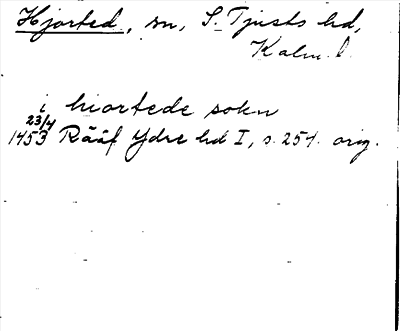 Hjorted, sn, S. Tjusts hd,
Kalm. l.
i hiortede sokn
23/4
1453 Rääf Ydre hd I, s. 251. orig.